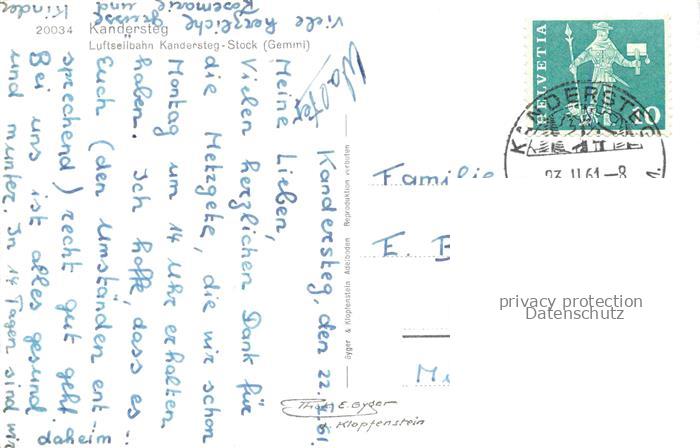 20034 Kandersteg
Luftseilbahn Kandersteg-Stock (Gemmi)
Kandersteg, den 22. 2. 61.
Meine Lieben,
Vielen herzlichen Dank für
die Metzgete, die wir schon
Montag um 14 Uhr erhalten
haben. Ich hoffe, dass es
Euch (den Umständen ent-
sprechend) recht gut geht.
Bei uns ist alles gesund
und munter. In 14 Tagen sind wir
daheim.
Viele herzliche Grüsse
Rosemarie und
Kinder
Walter
Gyger & Klopfenstein Adelboden Reproduktion verboten
Photo E. Gyger
& Klopfenstein
Familie
E.
HELVETIA
KANDERSTEG
23. II. 61 – 8
privacy protection
Datenschutz